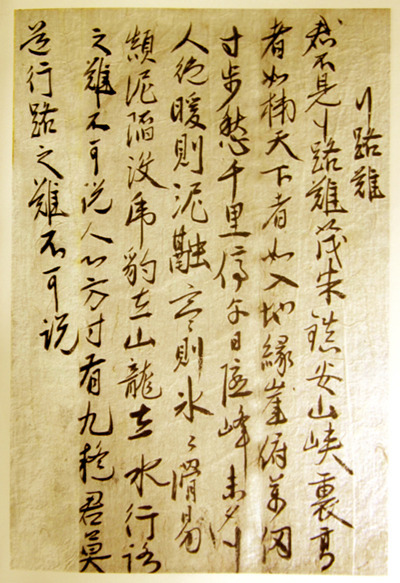 行路難
君不見行路難茂朱鎮安山峽裏高
者如梯天下者如入地緣崖俯萬仞
寸步愁千里停午日隱峰未夕行
人絕暖則泥融寒則冰〻滑易
顛泥陷沒虎豹在山龍在水行路
之難不可說人心方寸有九君莫
道行路之難不可說